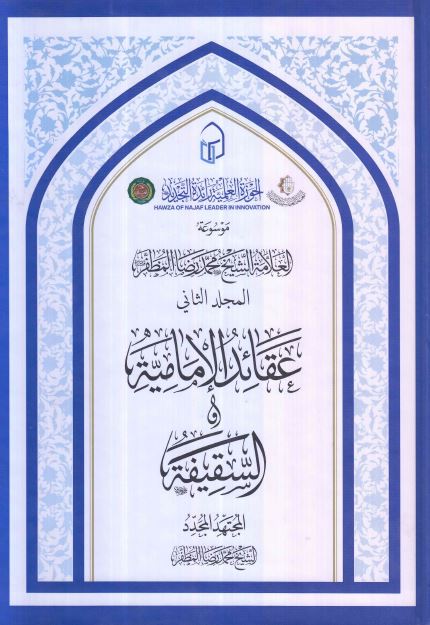 الحوزة العلمية رائدة التجدد
HAWZA OF NAJAF LEADER IN INNOVATION
موسوعة
العلامة الشيخ محمد رضا المظفر
المجلد الثاني
عقائد الإمامية
و
السقيفة
المجتهد المجدد
الشيخ محمد رضا المظفر